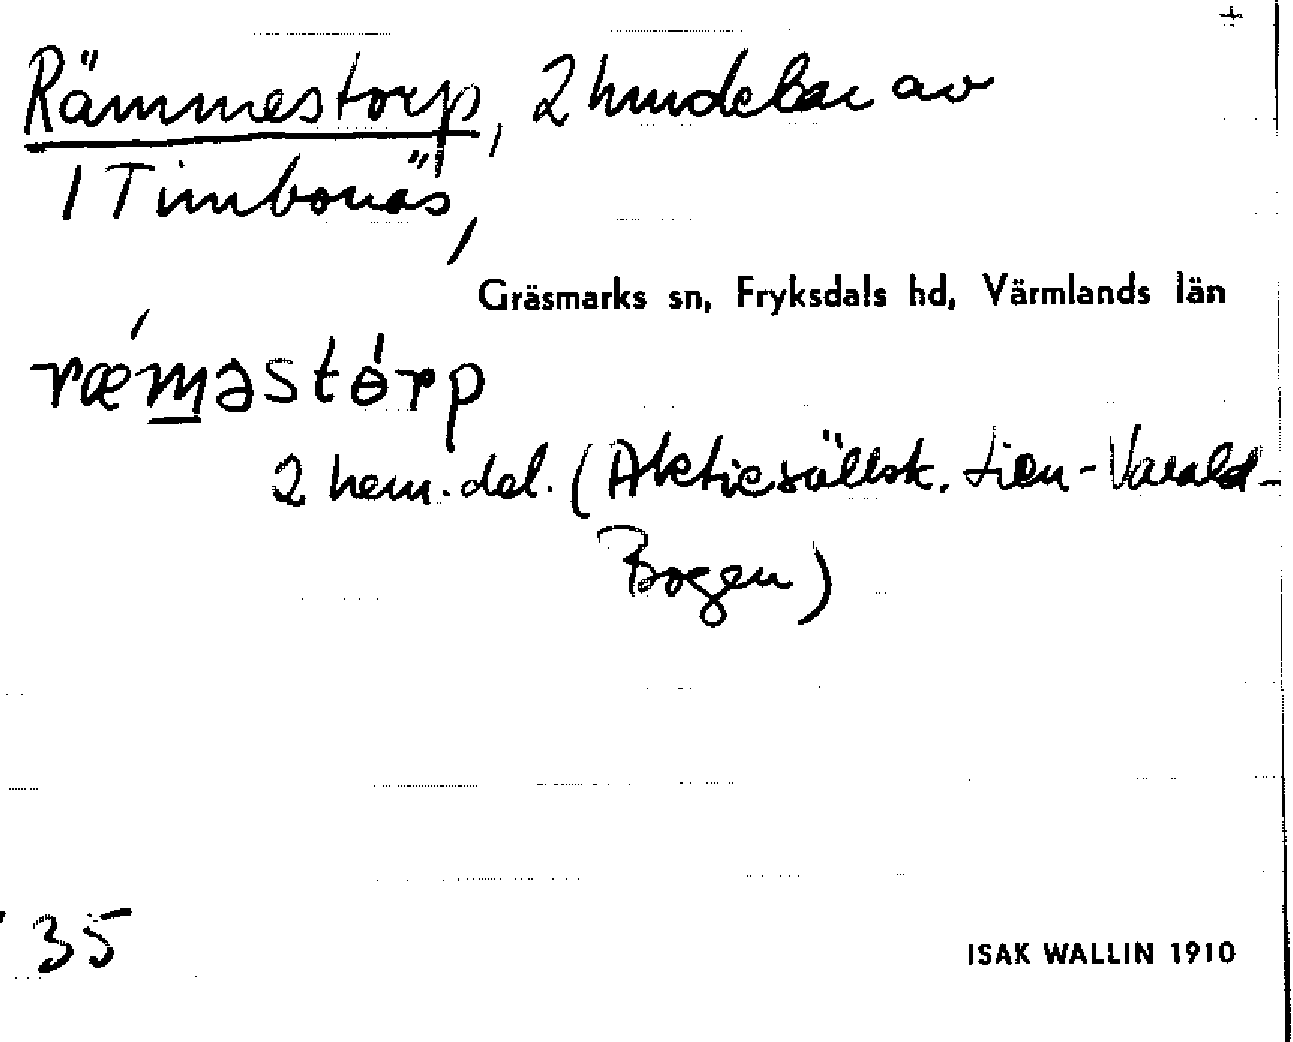 +
Rämmestorp, 2 hmdelar av
1 Timbonäs,
Gräsmarks sn, Fryksdals hd, Värmlands län
ræ´m̲əstɵ̍rp
2 hem.del. (Aktiesällsk. Lien-Varald-
Bogen)
35
ISAK WALLIN 1910